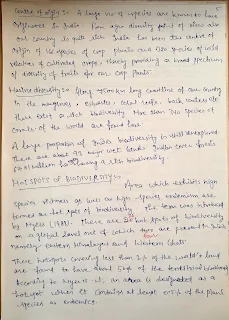 Centre of origin :- A large no of species are known to have
originated in India. From agro diversity point of view also
our country is quite rich. India has been the centre of
origin of 166 species of crop plants and 320 species of wild
relatives of cultivated crops, thereby providing a broad spectrum
of diversity of traits for our crop plants.
Marine diversity :- Along 7500 km long coastline of our country
in the mangroves, estuaries, coral reefs, back waters etc
there exist a rich biodiversity. More than 340 species of
corals of the world are found here.
A large proportion of India biodiversity is still unexplored.
There are about 93 major wet lands Indian coral forests
having a rich biodiversity.
HOTSPOTS OF BIODIVERSITY :-
Area which exhibits high
species richness as well as high species endemism are
termed as hot spots of biodiversity. The term was introduced
by Myers (1988). There are 25 hot spots of biodiversity
on a global level out of which are present in India,
namely eastern Himalayas and Western Ghats.
These hotspots covering less than 2% of the world's land
are found to have about 50% of the terrestrial biodiversity
According to Myers et. an area is designated as a
hotspot when it contains at least 0.5% of the plant
species as endemics.